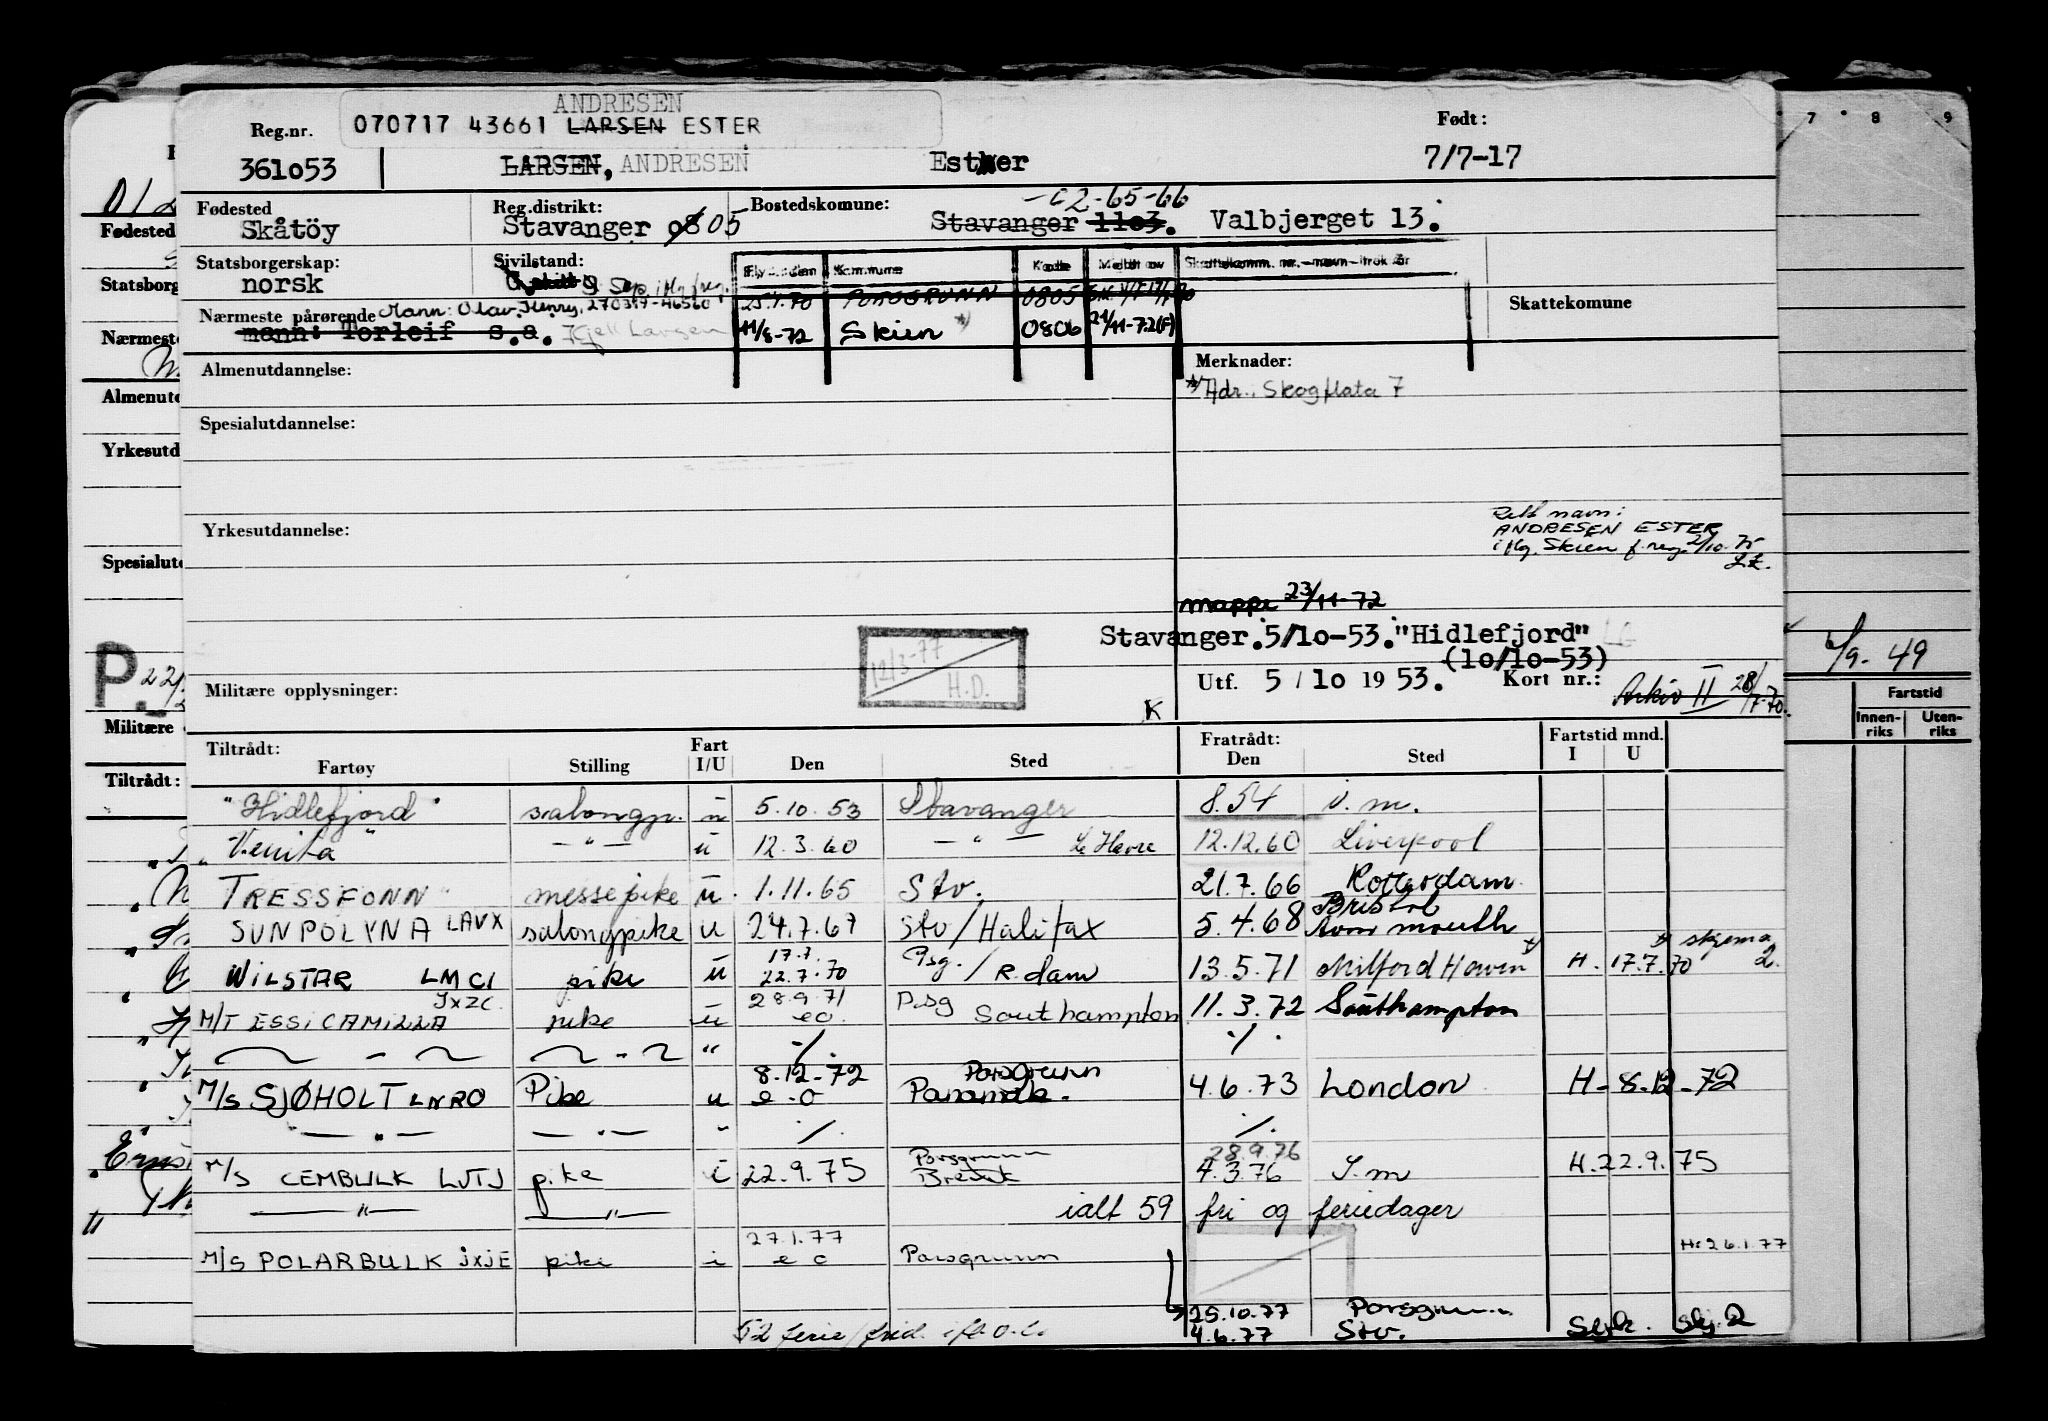 ANDRESEN
070717 43661 LARSEN ESTER
Reg.nr.
361o53
LARSEN, ANDRESEN
Ester
Født:
7/7-17
Fødested
Skåtöy
Reg.distrikt:
Stavanger 0805
Bostedskomune:
-62-65-66
Stavanger 11o3. Valbjerget 13.
Statsborgerskap:
norsk
Sivilstand:
Kommune
Kode
Skattekomm. nr. - navn - itrok år
Nærmeste pårørende Mann: Olav Henry, 270319-46560
mann: Torleif s.a. Kjell Larsen
PORSGRUNN 0805
11/8-72 Skien *) 0806 21/11-72(F)
Skattekomune
Almenutdannelse:
Merknader:
*) Adr.: Skogflata 7
Spesialutdannelse:
Yrkesutdannelse:
Rett navn:
ANDRESEN ESTER
iflg. Skien f.reg. 2/10.75
mappe 23/11-72
Stavanger.5/1o-53."Hidlefjord"
(1o/1o-53)
12/3-77
H.D.
Utf. 5 / 1o 19 53. Kort nr.:
Arkiv II 28/7.70.
Militære opplysninger:
K
Tiltrådt:
Fartøy
Stilling
Fart
I/U
Den
Sted
Fratrådt:
Den
Sted
Fartstid mnd.
I U
"Hidlefjord" salongp. u 5.10.53 Stavanger 8.54 s.m.
"Venita" — " — u 12.3.60 — " — Le Havre 12.12.60 Liverpool
TRESSFONN messepike u. 1.11.65 Stv. 21.7.66 Rotterdam
SUNPOLYNA LAVX salongpike u 24.7.67 Stv/Halifax 5.4.68 Bristol
Avonmouth
WILSTAR LMCI pike u 17.7.
22.7.70 Psg./R.dam 13.5.71 Milford Haven *) H. 17.7.70 *) skjema 2.
M/T ESSI CAMILLA JXZC. pike u 28.9.71
eo. Psg Southampton 11.3.72 Southampton
— " — " ./. ./.
M/S SJØHOLT LNRO Pike u 8.12-72
e.o Porsgrunn 4.6.73 London H-8.12-72
— " — — " — " ./. ./.
M/S CEMBULK LJTJ pike i 22.9.75 Porsgrunn
Brevik 28.9.76
4.3.76 S.m H.22.9.75
— " — — " — ialt 59 fri og feriedager
M/S POLARBULK JXJE pike i 27.1.77
eo Porsgrunn H: 26.1.77
25.10.77 Porsgrunn
52 ferie/frid. ifl. o.l. 4.6.77 Stv. Sjk. Skj. 2
Fødested
Nærmeste
Spesialut
P.
Militære
Tiltrådt:
7 8 9
6/9-49
Fartstid
Innen-
riks
Uten-
riks